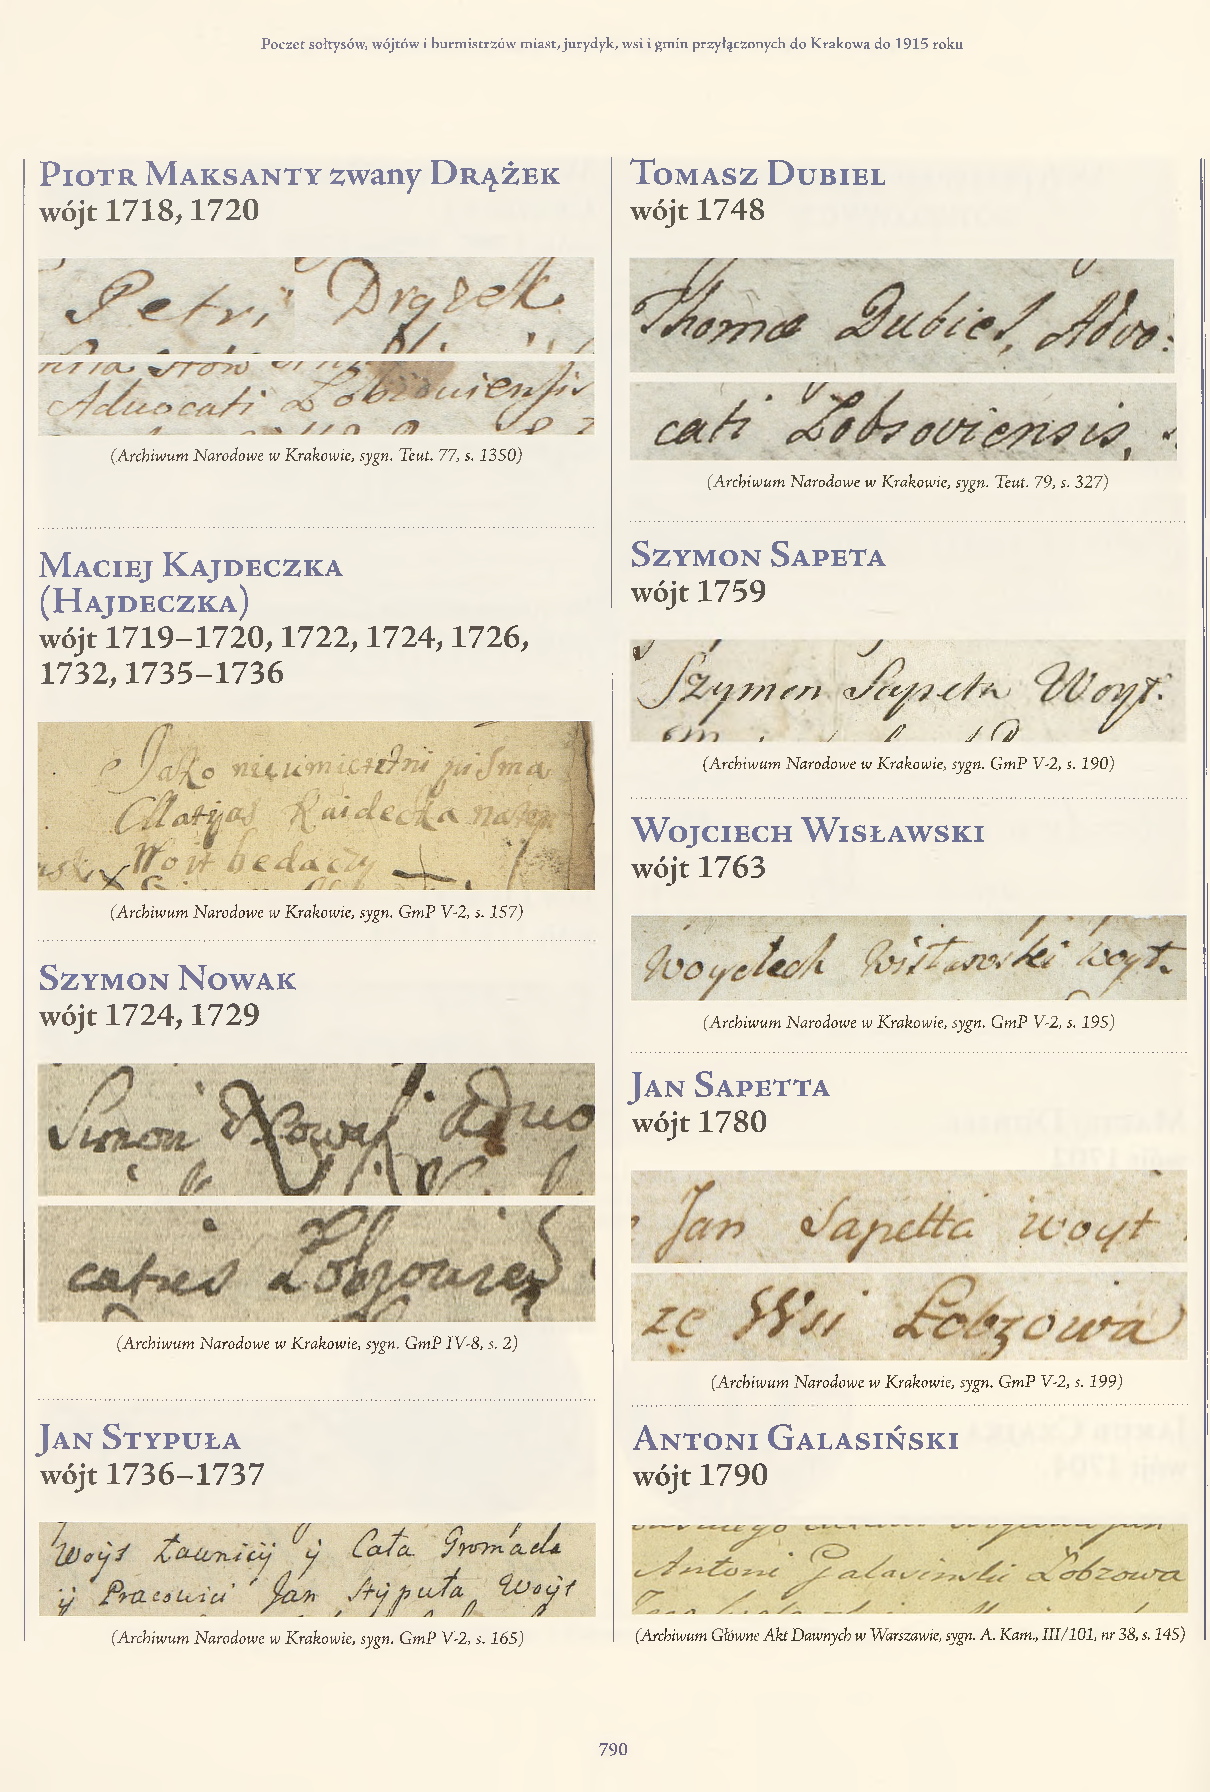 Poczet sołtysów, wójtów i burmistrzów miast, jurydyk, wsi i gmin przyłączonych do Krakowa do 1915 roku
Piotr Maksanty zwany Drążek
wójt 1718, 1720
Petri Drązek
Advocati Łobzoviensis
(Archiwum Narodowe w Krakowie, sygn. Teut. 77, s. 1350)
Maciej Kajdeczka
(Hajdeczka)
wójt 1719–1720, 1722, 1724, 1726,
1732, 1735–1736
Jako nieumieiętni pisma
Matyas Kaidecka
Woit bedaczy
(Archiwum Narodowe w Krakowie, sygn. GmP V-2, s. 157)
Szymon Nowak
wójt 1724, 1729
Simon Nowak Aduo
(Archiwum Narodowe w Krakowie, sygn. GmP IV-8, s. 2)
Jan Stypuła
wójt 1736–1737
Woyt Ławnicÿ ÿ Cała Gromada
ÿ Pracowici Jan Stÿpuła Woÿt
(Archiwum Narodowe w Krakowie, sygn. GmP V-2, s. 165)
Tomasz Dubiel
wójt 1748
Thomæ Dubiel, Advo:
cati Łobzoviensis,
(Archiwum Narodowe w Krakowie, sygn. Teut. 79, s. 327)
Szymon Sapeta
wójt 1759
Szymon Sapeta Woyt.
(Archiwum Narodowe w Krakowie, sygn. GmP V-2, s. 190)
Wojciech Wisławski
wójt 1763
Woyciech Wisławski woyt.
(Archiwum Narodowe w Krakowie, sygn. GmP V-2, s. 195)
Jan Sapetta
wójt 1780
Jan Sapetta woyt
ze Wsi Łobzowa
(Archiwum Narodowe w Krakowie, sygn. GmP V-2, s. 199)
Antoni Galasiński
wójt 1790
Antoni Galasinski Łobzowa
(Archiwum Główne Akt Dawnych w Warszawie, sygn. A. Kam., III/101, nr 38, s. 145)
790